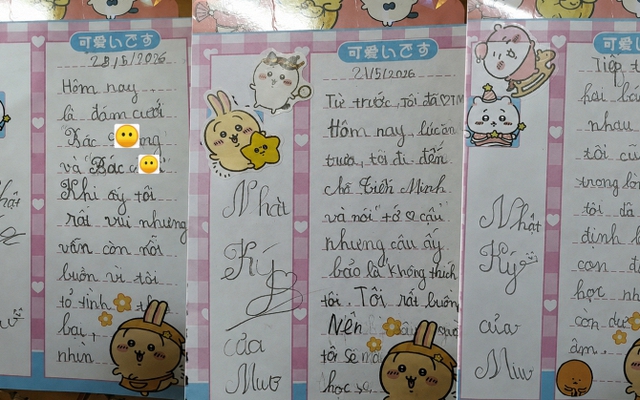 可愛いです
28/5/2026
Hôm nay
là đám cưới
Bác ong
và Bác
Khi ấy tôi
rất vui nhưng
vẫn còn nỗi
buồn vì tôi
tỏ tình
bại,
nhìn
可愛いです
21/5/2026
Nhật
Ký
của
Mưu
Từ trước, tôi đã ♡ TM
Hôm nay, lúc ăn
trưa, tôi đi đến
chỗ Tiến Minh
và nói "tớ ♡ cậu"
nhưng cậu ấy
bảo là không thích
tôi. Tôi rất buồn
Nên
tôi sẽ
học
可愛いです
Nhật
Ký
của
Mưu
Tiếp
hai
nhau
tôi cũ
trong lò
tôi đã
định
con đ
học nh
còn dư
âm.